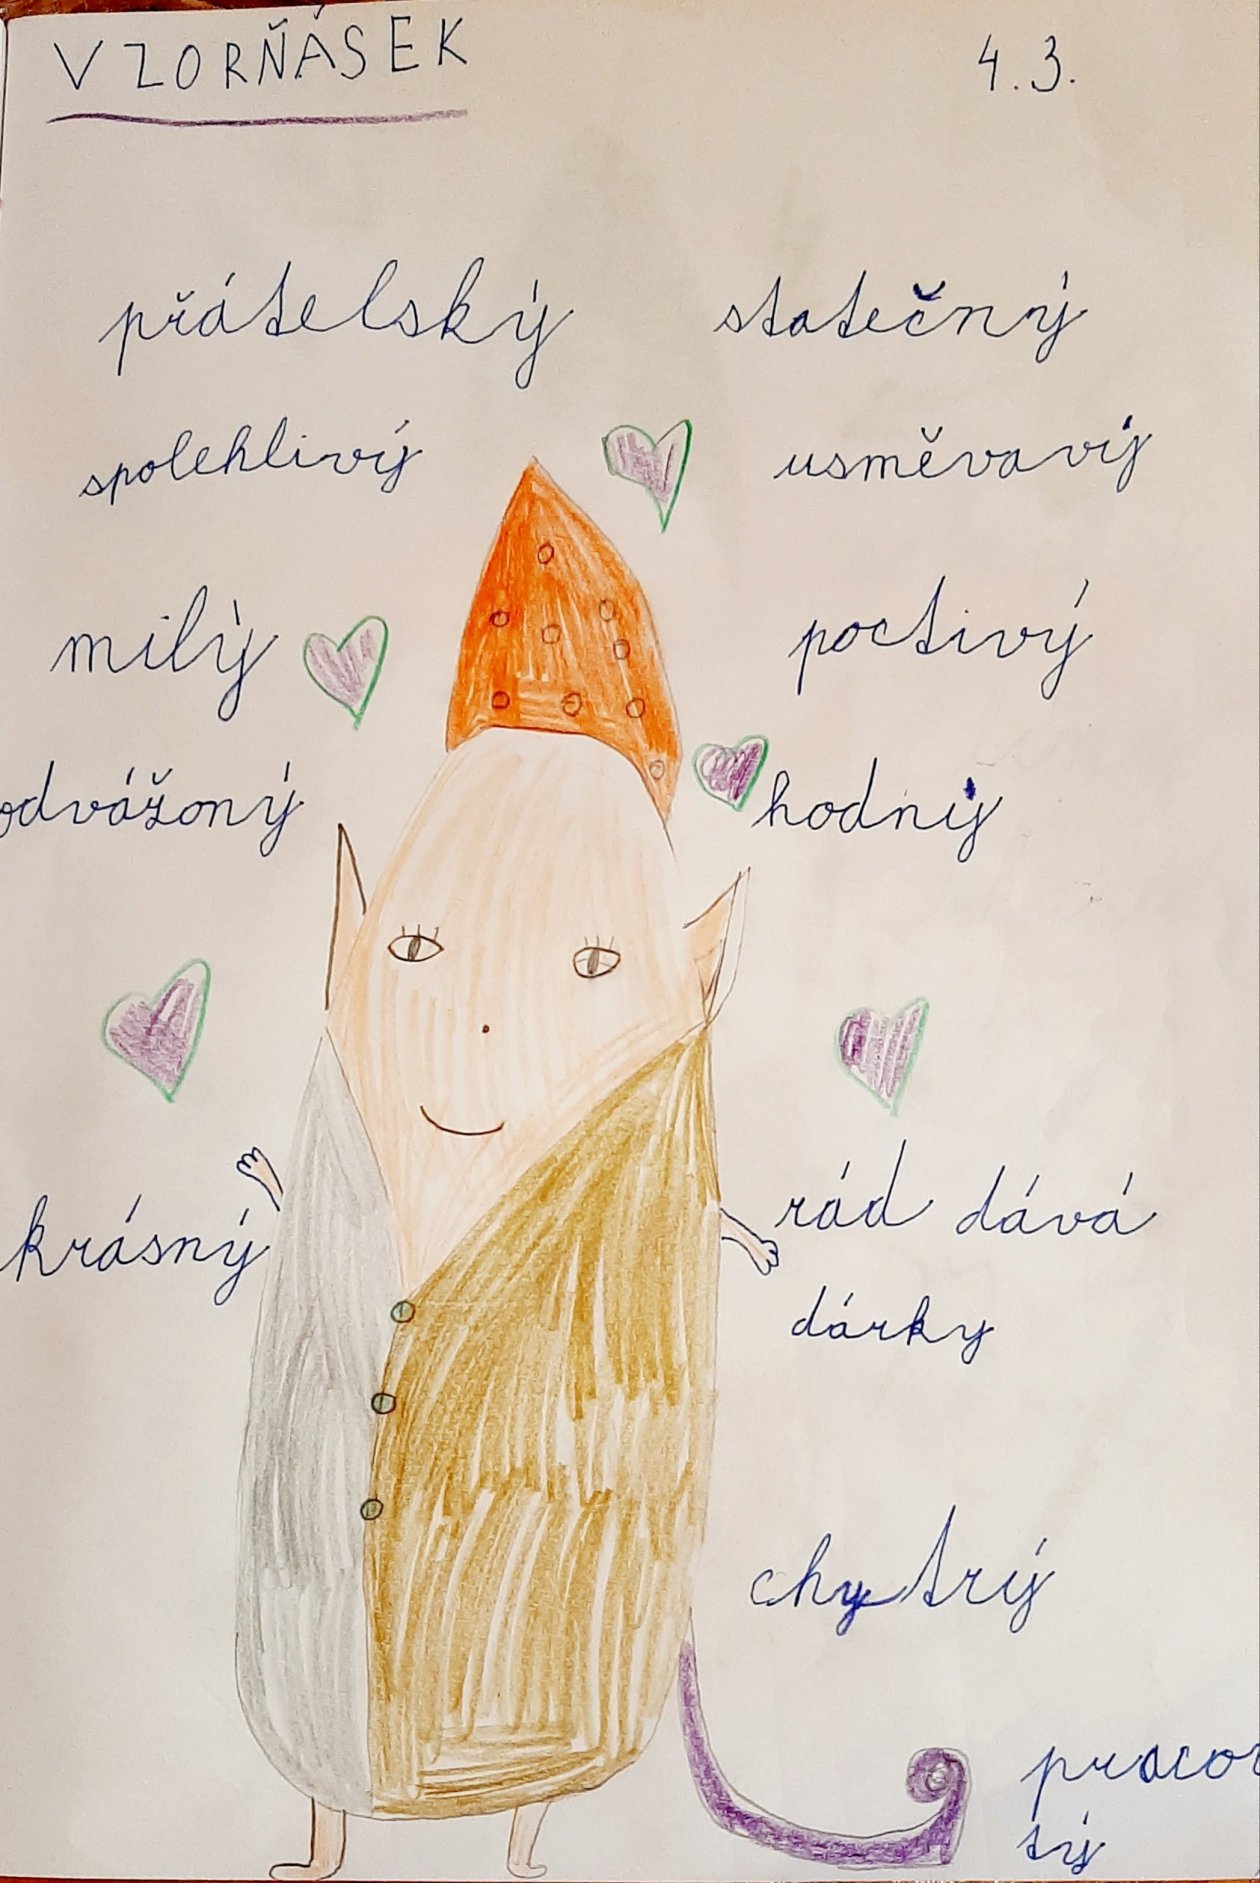 VZORŇÁSEK 4.3.
přátelský statečný
spolehlivý usměvavý
milý poctivý
odvážoný hodný
krásný rád dává
dárky
chytrý
pracov
tý